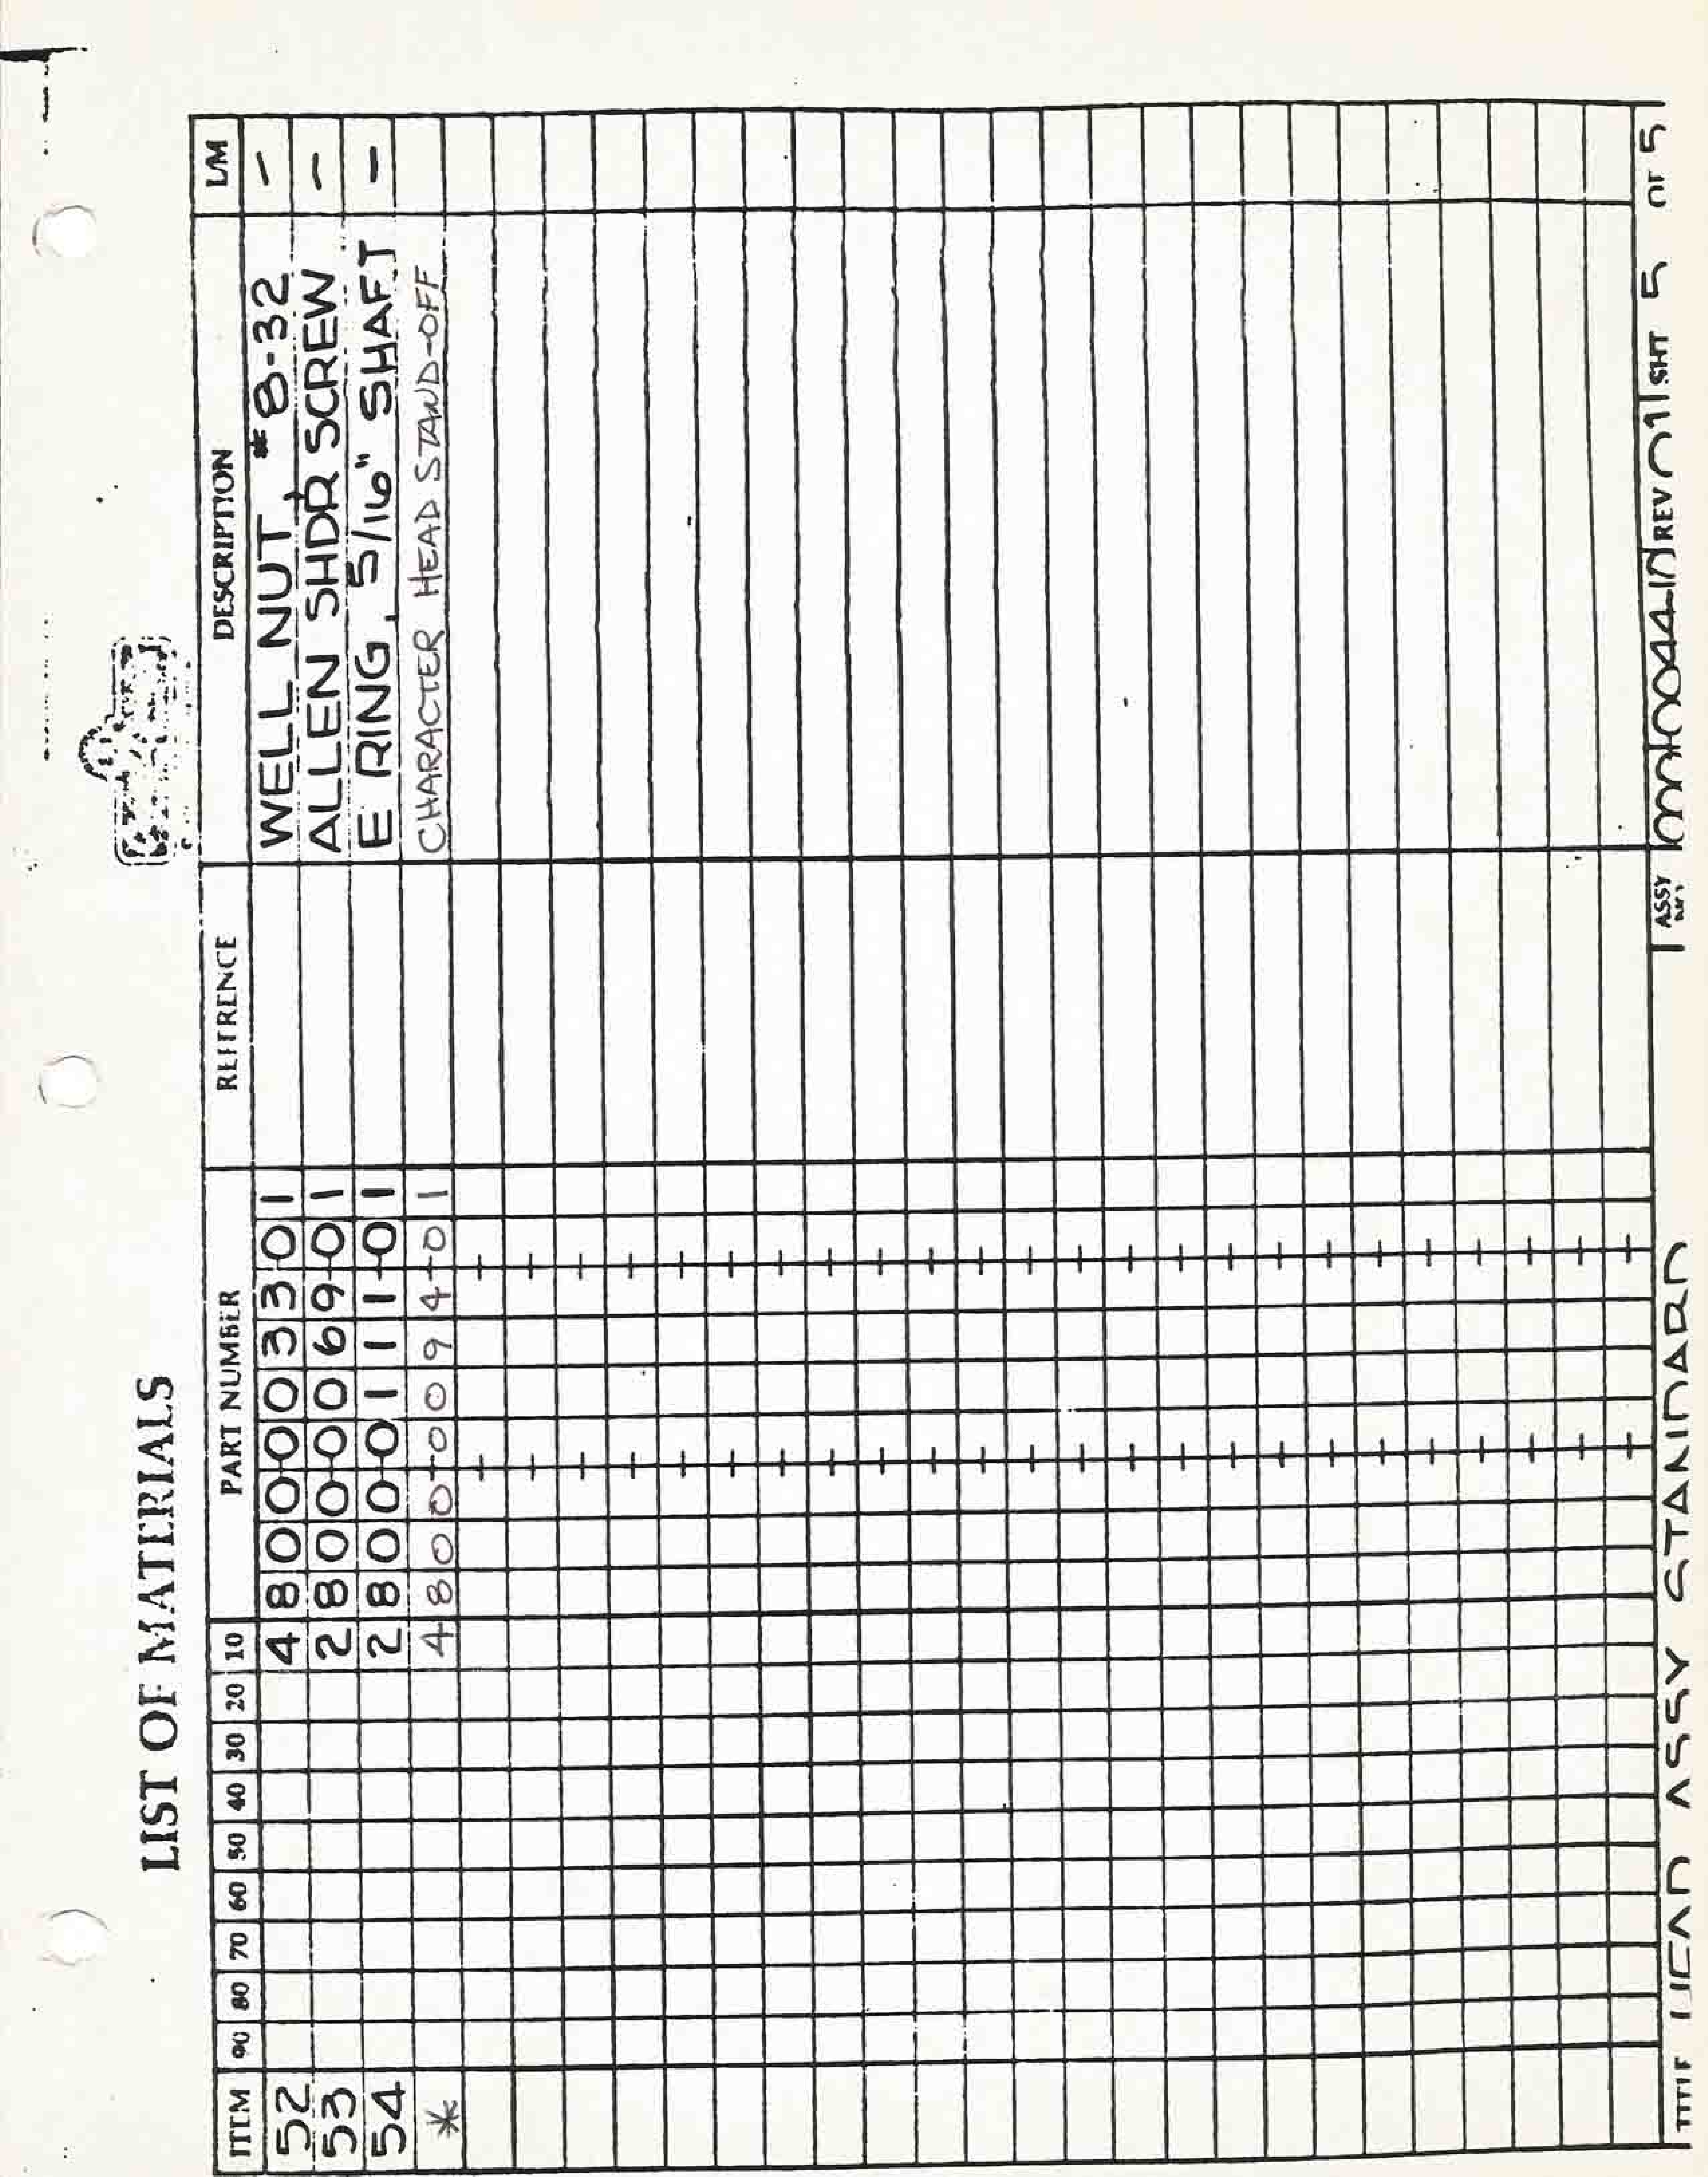 LIST OF MATERIALS
ITEM 90 80 70 60 50 40 30 20 10 PART NUMBER REFERENCE DESCRIPTION L/M
52 4 800-0033-01 WELL NUT #8-32 -
53 2 800-0069-01 ALLEN SHDR SCREW -
54 2 800-0111-01 E RING, 5/16" SHAFT -
* 4 800-0094-01 CHARACTER HEAD STAND-OFF
TITLE HEAD ASSY STANDARD ASSY NO. REV 01 SHT 5 OF 5